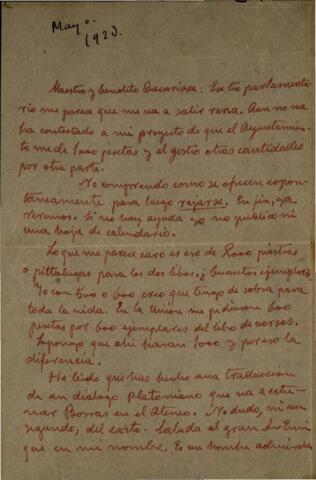 Mayo
1923.
Maestro y bendito Bacarisse: Ese tio parlamenta
rio me parece que me va a salir rana. Aun no me
ha contestado a mi proyecto de que el Ayuntamien
to me dé 1000 pesetas y el gestio otras cantidades
por otra parte.
No comprendo como se ofrecen espon-
taneamente para luego rajarse. En fin, ya
veremos. Si no hay ayuda yo no publico ni
una hoja de calendario.
Lo que me parece caro es eso de 2.000 piastras
o pittalugas para los dos libos. ¿Cuantos ejemplares?
Yo con 500 o 600 creo que tengo de sobra para
toda la vida. En la Unión me pidieron 600
por 600 ejemplares del libo de versos.
Supongo que ahi haran 1000 y por eso la
diferencia.
He leido que has hecho una traduccion
de un dialogo Platoniano que va a estre-
nar Borrás en el Ateneo. No dudo, ni un
segundo, del exito. Saluda al gran
que en mi nombre. Es un hombre admirable